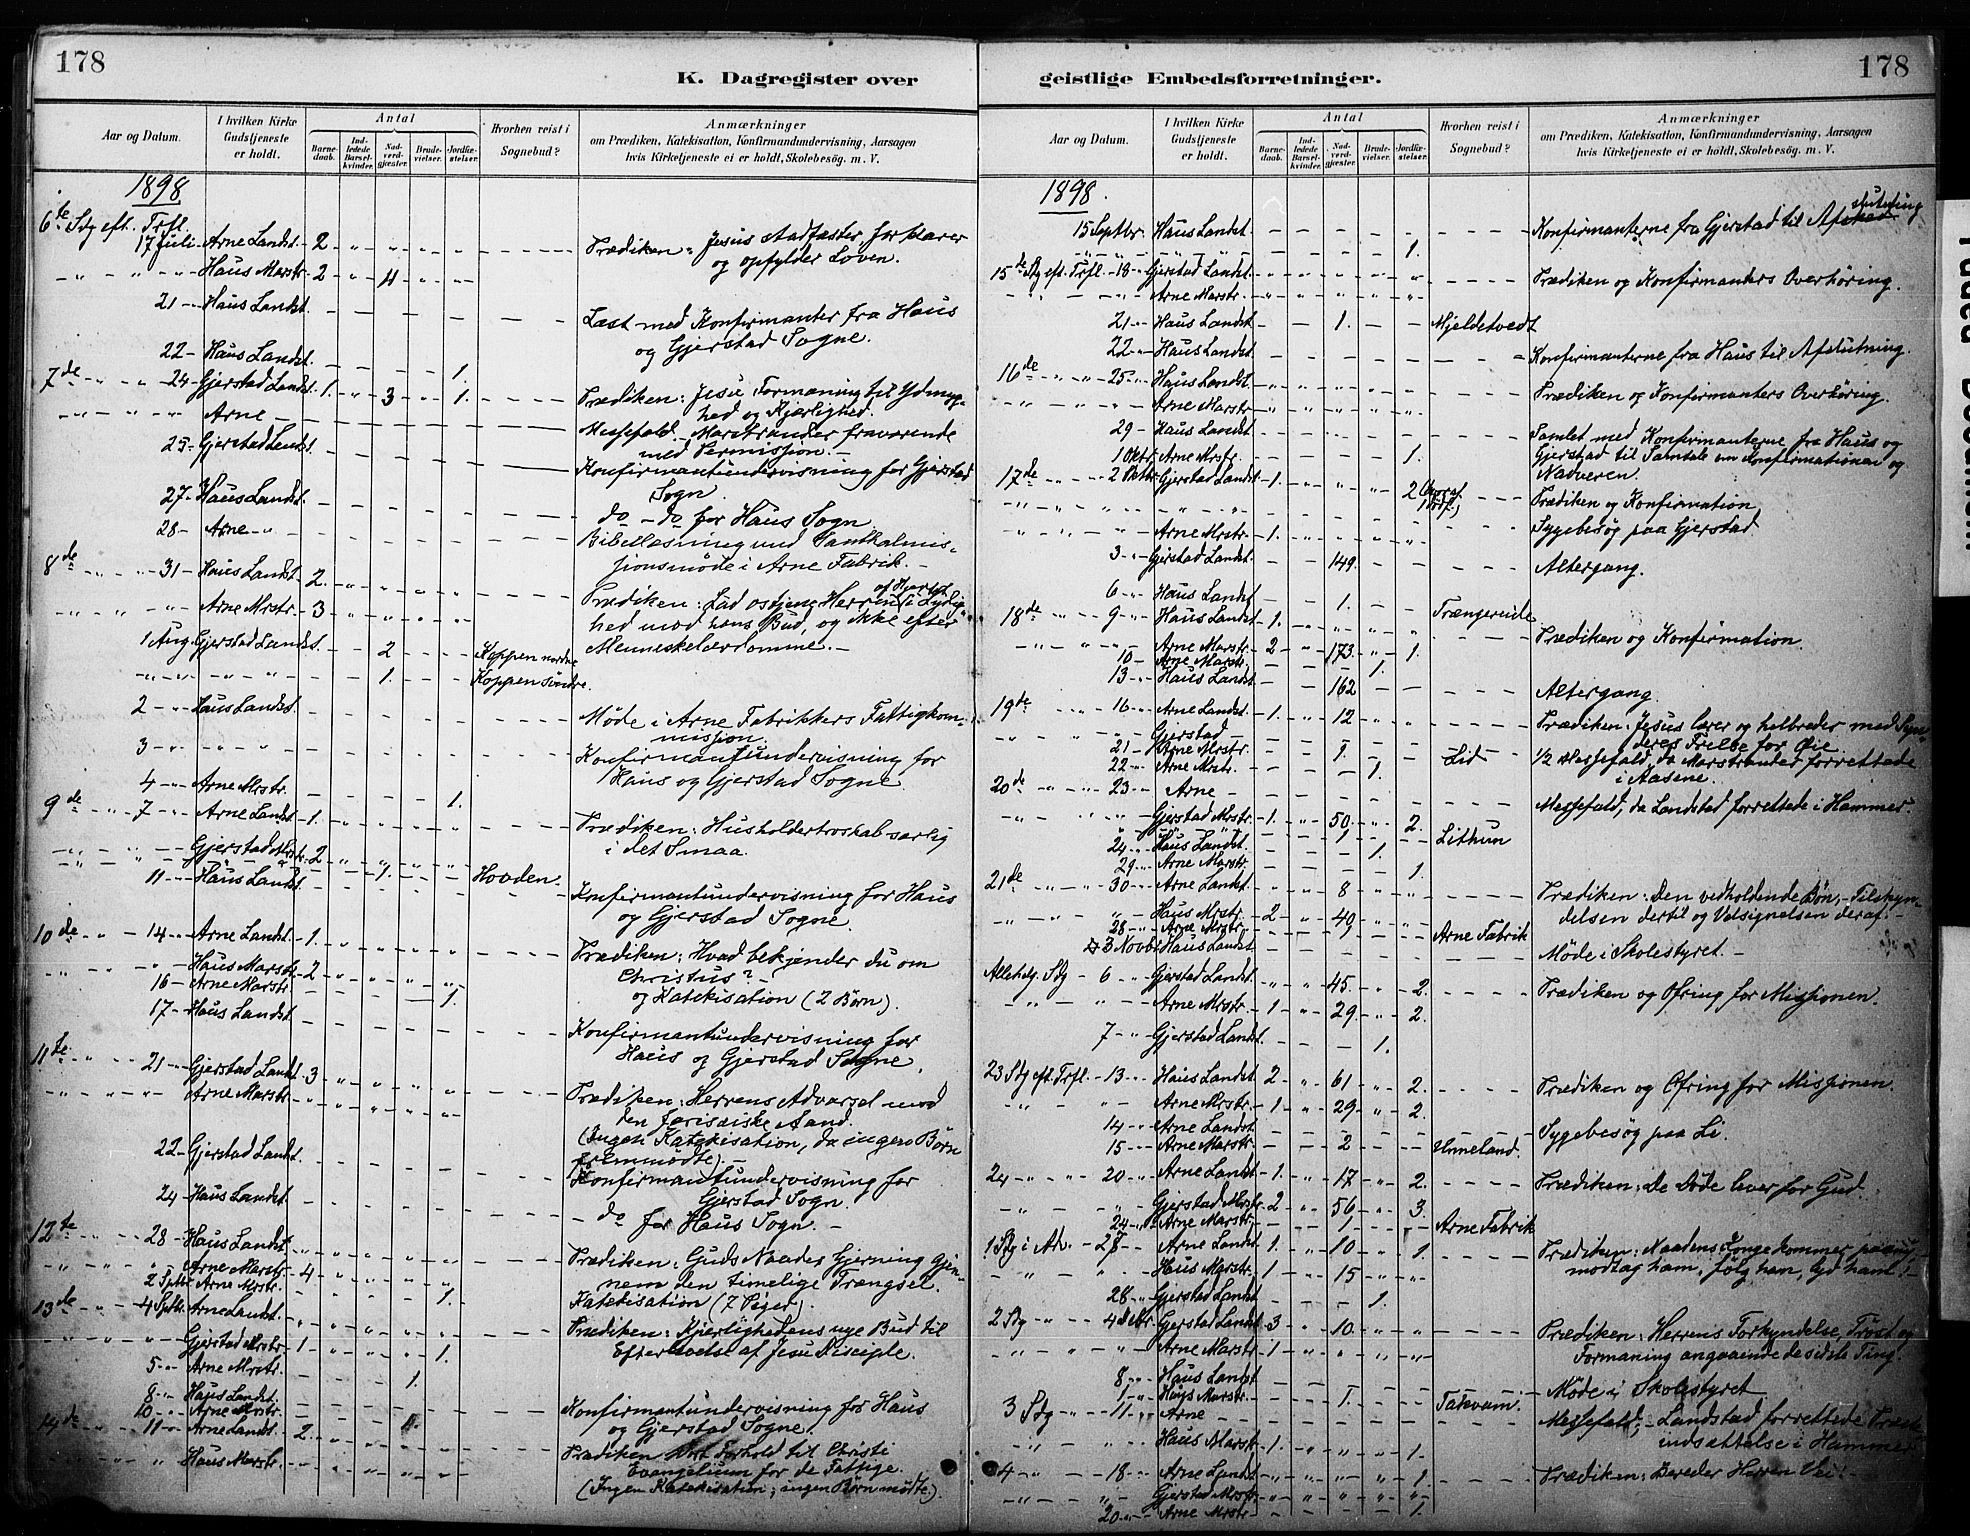 178
K. Dagregister over
Aar og Datum.
I hvilken Kirke Gudstjeneste er holdt.
Antal
Barnedaab.
Indledede Barselkvinder.
Nadverdgjæster.
Brudevielser.
Jordfæstelser.
Hvorhen reist i Sognebud?
Anmærkninger
om Prædiken, Katekisation, Konfirmandundervisning, Aarsagen
hvis Kirketjeneste ei er holdt, Skolebesög. m. V.
1898
6te Sdg eft. Trfl.
17 Juli Arne Landst. 2 Prædiken: Jesus stadfæster forklarer
og opfylder Loven.
Haus Marstr. 2 4
21 Haus Landst. Læst med Konfirmanter fra Haus
og Gjerstad Sogne.
22 Haus Landst. 1.
7de 24 Gjerstad Landst. 1. 3 1. Prædiken: Jesu Formaning til Ydmyg-
hed og Kjærlighed.
Arne Messefald. Marstrander fraværende
med Permisjon.
25 Gjerstad Landst. Konfirmantundervisning for Gjerstad
Sogn
27 Haus Landst. do - do for Haus Sogn
28 Arne Bibellæsning ved Santhalmis-
sionsmøde i Arne Fabrik.
8de 31 Haus Landst. 2. Prædiken: Lad os tjene Herren af Hjertet i Lydig-
Arne Mrstr. 3 hed mod hans Bud, og ikke efter
1 Aug. Gjerstad Landst. 2 Koppen nordre Menneskelærdomme.
1. Koppen søndre.
2 Haus Landst. Møde i Arne Fabrikkers Fattigkom-
mission.
3 Konfirmantundervisning for
Haus og Gjerstad Sogne
4 Arne Mrstr. 1.
9de 7 Arne Landst. 1. Prædiken: Husholdertroskab særlig
i det Smaa.
Gjerstad Mrstr. 2
11 Haus Landst. 1. Hovden Konfirmantundervisning for Haus
og Gjerstad Sogne.
10de 14 Arne Landst. 1. Prædiken: Hvad bekjender du om
Haus Marstr. 2 Christus?
16 Arne Marstr. 1. og Katekisation (2 Børn).
17 Haus Landst. Konfirmantundervisning for
Haus og Gjerstad Sogne.
11te 21 Gjerstad Landst. 3 Prædiken: Herrens Advarsel mod
Arne Marstr. den farisæiske Aand.
(Ingen Katekisation, da ingen Børn
fremmødte).
22 Gjerstad Landst. Konfirmantundervisning for
Gjerstad Sogn.
24 Haus Landst. do for Haus Sogn.
12te 28 Haus Landst. Prædiken: Guds Naades Gjerning gjen-
Arne Marstr. 4 nem den timelige Trængsel.
2 Sptbr. Arne Mrstr. 1. Katekisation (7 Piger).
13de 4 Sptbr. Arne Landst. Prædiken: Kjerlighedens nye Bud til
Gjerstad Mrstr. 1 1. Efterlevelse af Jesu Disciple.
5 Arne Mrstr. 1.
8 Haus Landst. Konfirmantundervisning for Haus
10 Arne Mrstr. og Gjerstad Sogne.
14de 11 Arne Landst. 2. Prædiken: Vort Forhold til Christi
Haus Marstr. Evangelium for de Fattige.
(Ingen Katekisation; ingen Børn mødte).
178
geistlige Embedsforretninger.
Aar og Datum.
I hvilken Kirke Gudstjeneste er holdt.
Antal
Barnedaab.
Indledede Barselkvinder.
Nadverdgjæster.
Brudevielser.
Jordfæstelser.
Hvorhen reist i Sognebud?
Anmærkninger
om Prædiken, Katekisation, Konfirmandundervisning, Aarsagen
hvis Kirketjeneste ei er holdt, Skolebesög. m. V.
1898.
15 Septbr. Haus Landst. Konfirmanterne fra Gjerstad til Afslutning
1.
15de Sdg eft. Trfl. 18 Gjerstad Landst. Prædiken og Konfirmanters Overhøring.
Arne Marstr.
21 Haus Landst. 1. Mjeldetvedt
22 Haus Landst. Konfirmanterne fra Haus til Afslutning.
16de 25 Haus Landst. Prædiken og Konfirmanters Overhøring.
Arne Marstr.
29 Haus Landst. Samlet med Konfirmanterne fra Haus og
1 Oktr. Arne Mrstr. 1. Gjerstad til Samtale om Konfirmationen og
Nadveren.
17de 2 Oktbr. Gjerstad Landst. 1. 2 Prædiken og Konfirmation
Sygebesøg paa Gjerstad.
Arne Mrstr. 1.
3 Gjerstad Landst. 149. Altergang.
6 Haus Landst. 1. Trængereide
18de 9 Haus Landst. 1. Prædiken og Konfirmation.
Arne Marstr. 2 173. 1.
10 Arne Marstr. 1.
13 Haus Landst. 162 Altergang
19de 16 Arne Landst. 1. 12 Prædiken: Jesus lærer og helbreder med Syn-
Gjerstad deres Frelse for Øie.
21 Arne Mrstr. 1. Lid 1/2 Messefald, da Marstrander forrettede
22 Arne Mrstr. 1. i Aasene.
20de 23 Arne Messefald, da Landstad forrettede i Hammer.
Gjerstad Mrstr. 1. 50. 2.
24 Haus Landst. 1 1. Lithun
29 Arne Marstr. 1.
21de 30 Arne Landst. 8 Prædiken: Den vedholdende Bøn, - Tilskyn-
Haus Mrstr. 2 40 delsen dertil og Velsignelsen deraf.
28 Arne Mrstr. 1 Arne Fabrik
3 Novbr. Haus Landst. Møde i Skolestyret.
Allehelg. Sdg 6 Gjerstad Landst. 45. 2. Prædiken og Ofring for Missjonen.
Arne Mrstr. 1 29. 2.
7 Gjerstad Landst. 1.
23 Sdg eft. Trfl. 13 Haus Landst. 2 61 2. Prædiken og Ofring for Missjonen
Arne Mrstr. 1 29 2.
14 Arne Landst. Sygebesøg paa Li.
15 Arne Marstr. 2 Unneland.
24 20 Arne Landst. 1. 17 2. Prædiken: De Døde lever for Gud.
Gjerstad Mrstr. 2 56 3.
24 Arne Marstr. 1 Arne Fabrik
1 Sdg i Adv. 27 Arne Landst. 1. 10 1. Prædiken: Naadens Konge kommer paany
Haus Marstr. 1 15 modtag ham, følg ham, lyd ham!
28 Gjerstad Landst. 1.
2 Sdg 4 Debr. Gjerstad Landst. 3 10. Prædiken: Herrens Forkyndelse, Trøst og
Arne Marstr. 1 Formaning angaaende de sidste Ting.
8 Haus Landst. Møde i Skolestyret
1 Haus Marstr. 1. Takvam
3 Sdg 11 Arne Messefald; Landstad forrettede Præste-
indsættelse i Hammer
Haus Marstr. 1. 1.
4 18 Arne Landst. 1. Prædiken: Bereder Herren Vei!
Gjerstad Mrstr.
20 Arne Mrstr. 1.